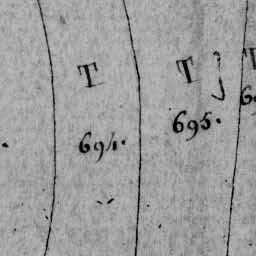 T
694.
T
695.
T